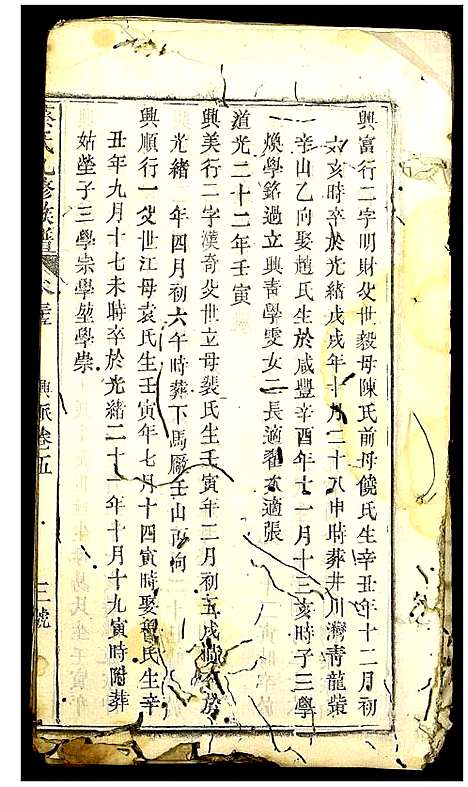 興富行二字明財父世毅母陳氏前母饒氏生辛丑年十二月初
六亥時卒於光緒戊戌年十月二十八申時葬井川灣青龍嘴
辛山乙向娶趙氏生於咸豐辛酉年十一月十三亥時子三學
煥學銘過立興書學雯女二長適翟次適張
道光二十二年壬寅
興美行二字漢奇父世立母裴氏生壬寅年二月初五戌時卒於
光緒 年四月初六午時葬下馬廠壬山丙向
興順行一父世江母袁氏生壬寅年七月十四寅時娶魯氏生辛
丑年九月十七未時卒於光緒二十一年十月十九寅時附葬
姑塋子三學宗學堃學崇
蔡氏九修族譜
興派卷五
三號